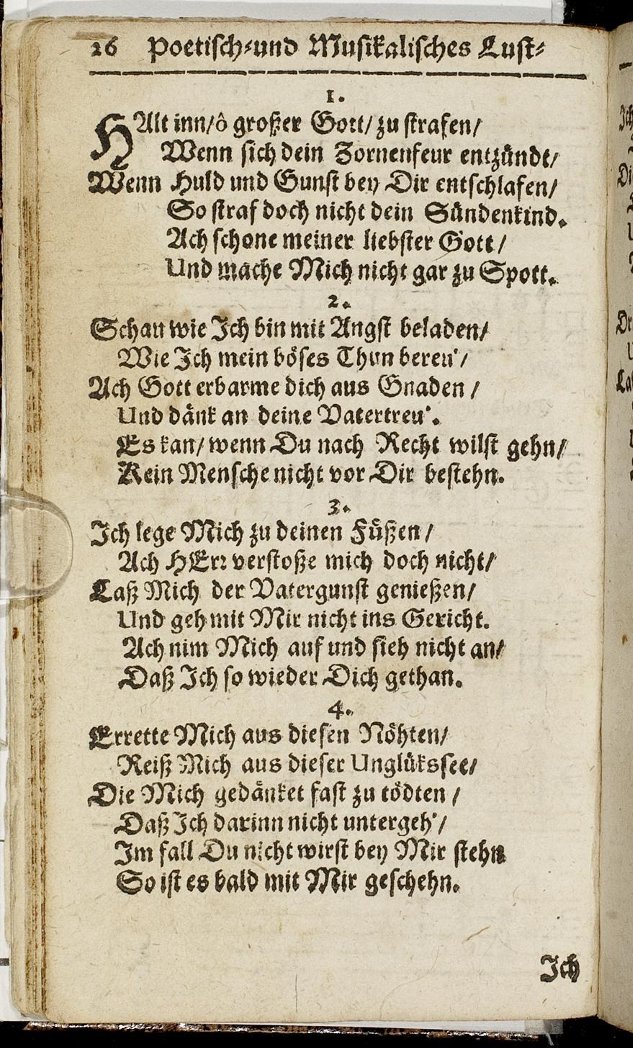 26 Poetisch-und Musikalisches Lust-
1.
HAlt inn/ô großer Gott/ zu strafen/
Wenn sich dein Zornenfeur entzündt/
Wenn Huld und Gunst bey Dir entschlafen/
So straf doch nicht dein Sündenkind.
Ach schone meiner liebster Gott/
Und mache Mich nicht gar zu Spott.
2.
Schau wie Ich bin mit Angst beladen/
Wie Ich mein böses Thun bereu'/
Ach Gott erbarme dich aus Gnaden/
Und dänk an deine Vatertreu'.
Es kan/ wenn Du nach Recht wilst gehn/
Kein Mensche nicht vor Dir bestehn.
3.
Ich lege Mich zu deinen Füßen/
Ach HErr verstoße mich doch nicht/
Laß Mich der Vatergunst genießen/
Und geh mit Mir nicht ins Gericht.
Ach nim Mich auf und sieh nicht an/
Daß Ich so wieder Dich gethan.
4.
Errette Mich aus diesen Nöhten/
Reiß Mich aus dieser Unglükssee/
Die Mich gedänket fast zu tödten/
Daß Ich darinn nicht untergeh'/
Im fall Du nicht wirst bey Mir stehn
So ist es bald mit Mir geschehn.
Ich